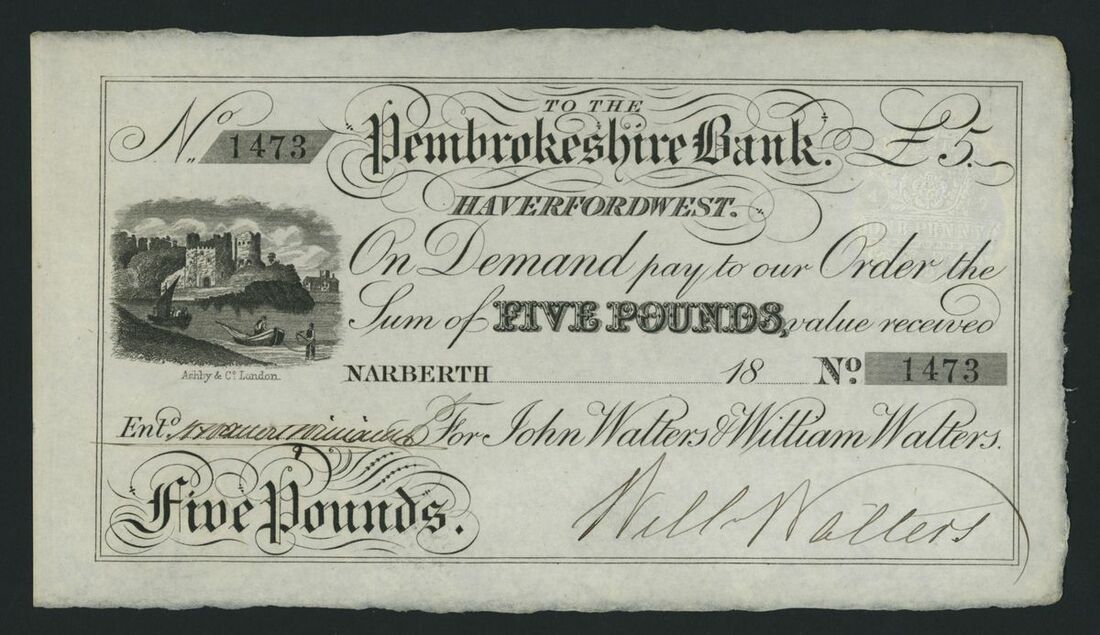 TO THE
No. 1473 Pembrokeshire Bank. £5.
HAVERFORDWEST.
On Demand pay to our Order the
Sum of FIVE POUNDS, value received
Ashby & Co. London.
NARBERTH 18 No. 1473
Entd. For John Walters & William Walters.
Five Pounds.
Will Walters